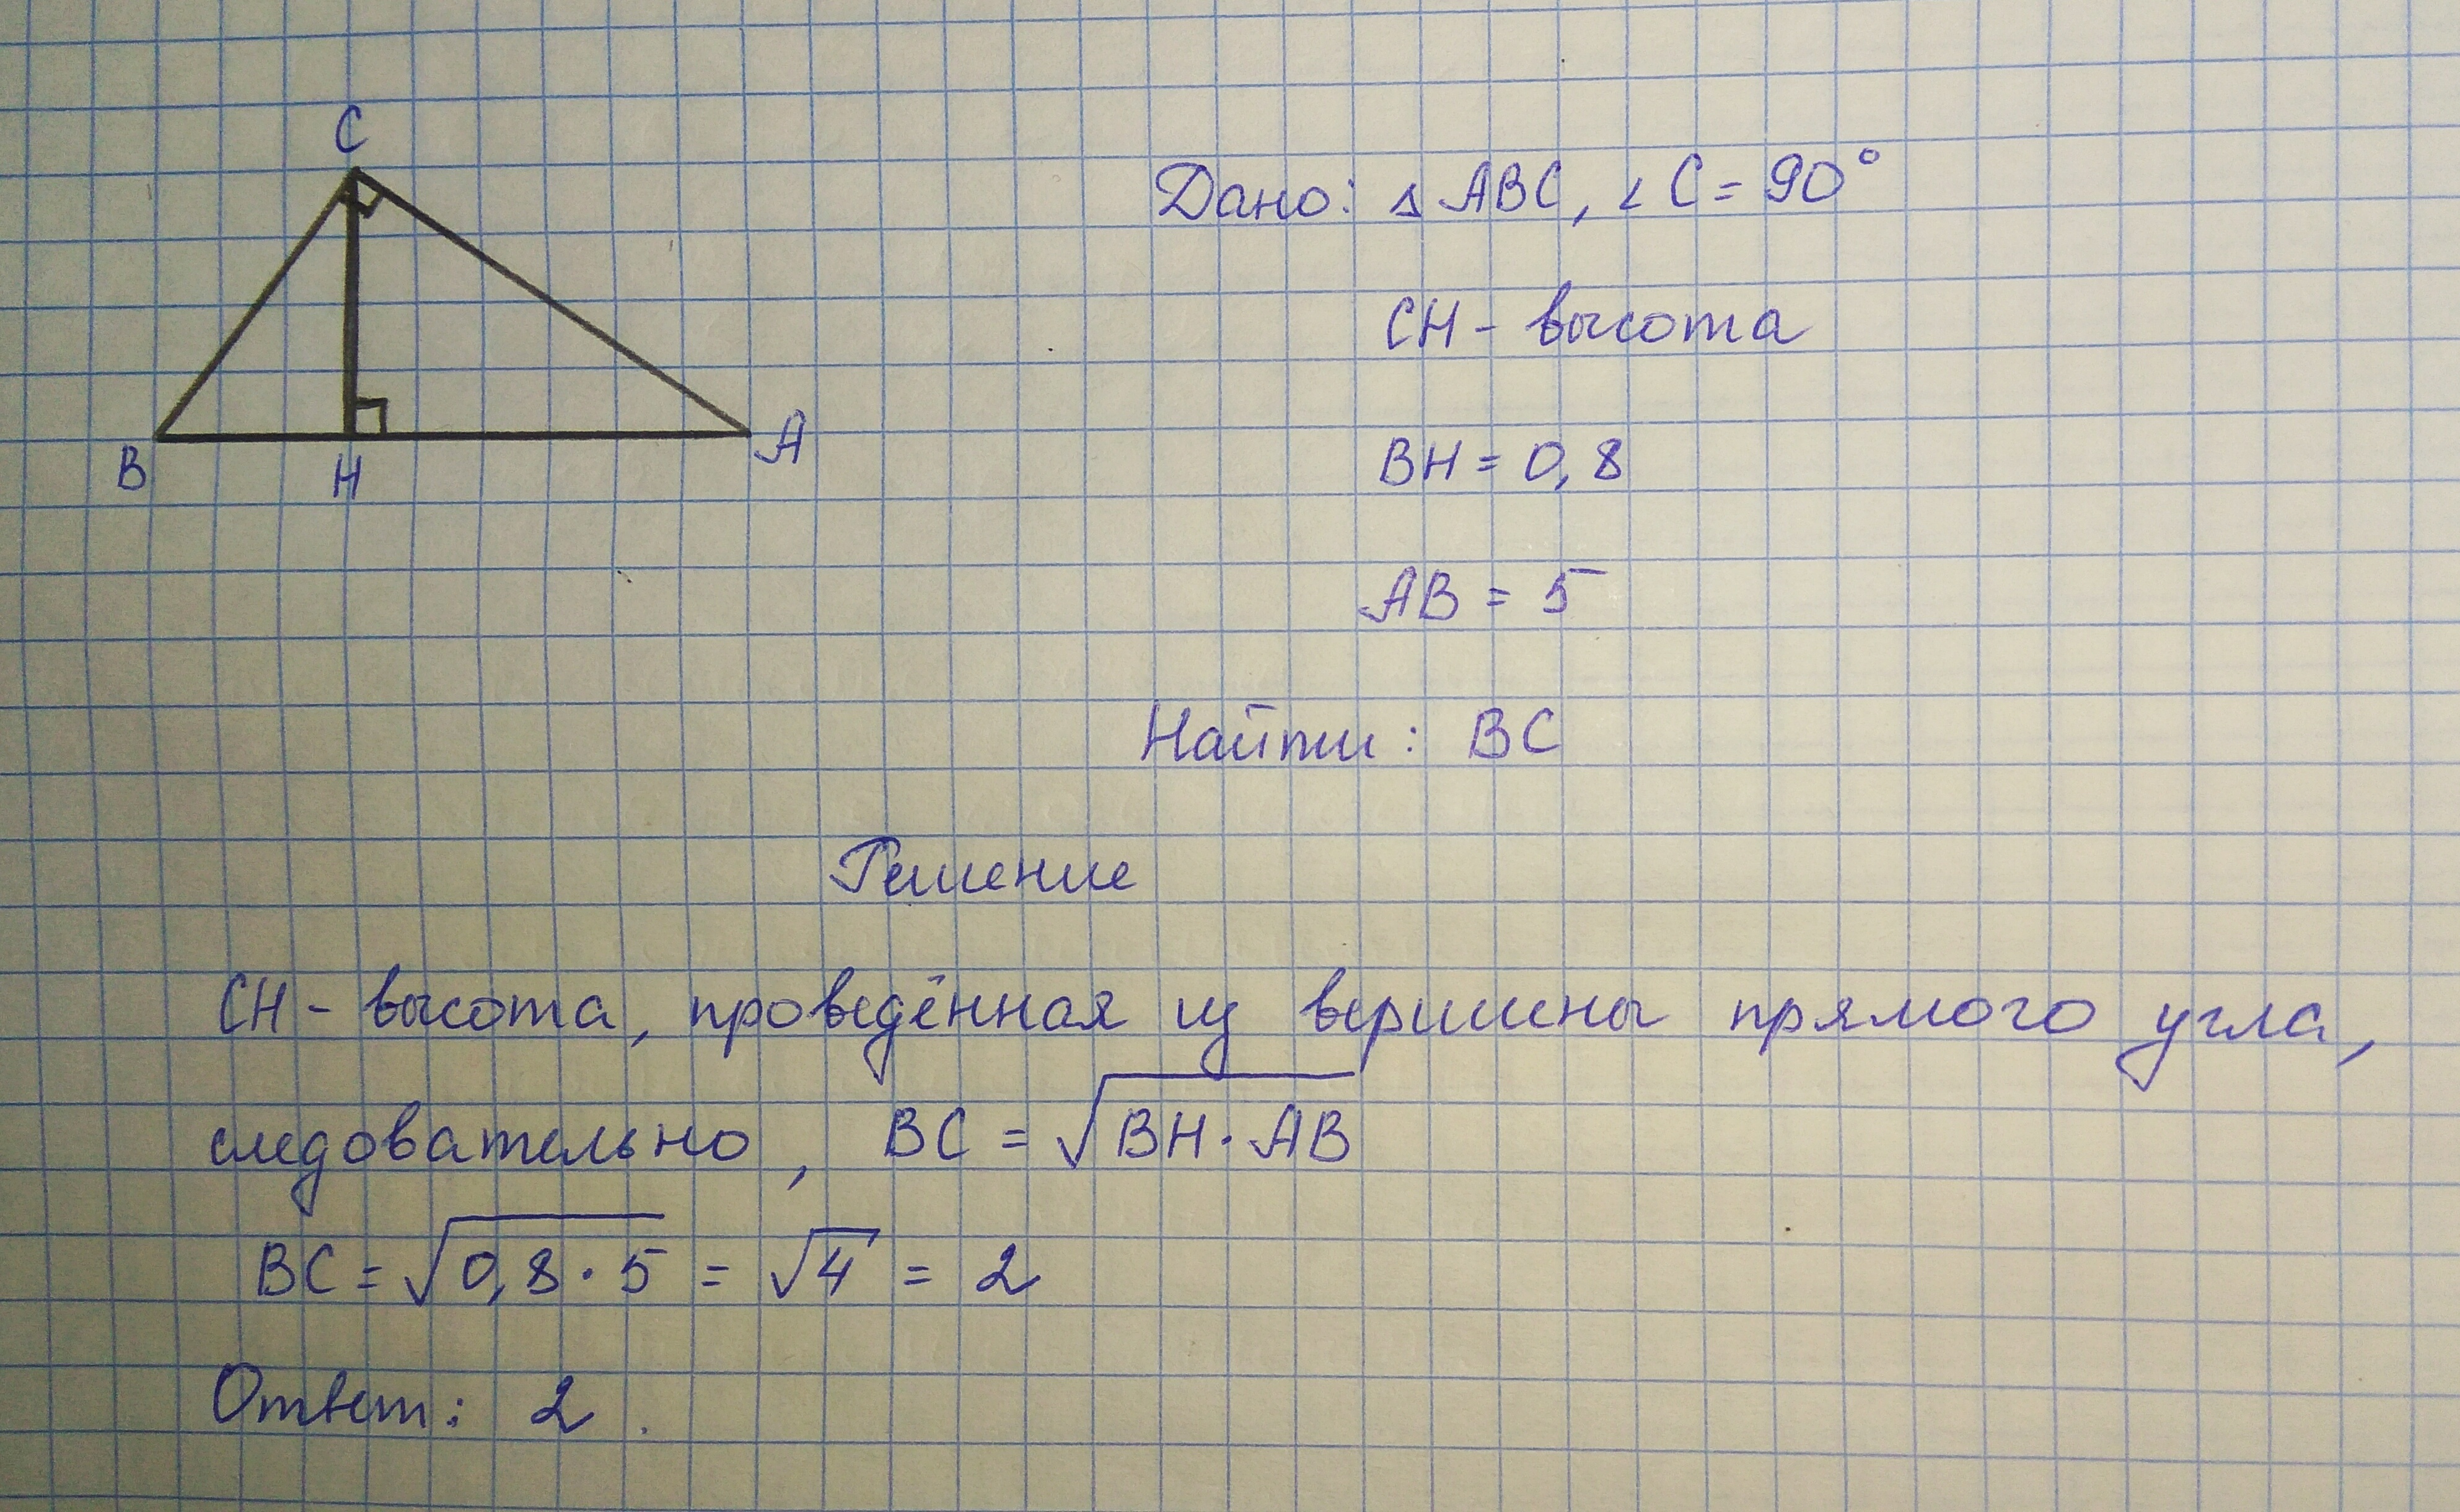 C
B
H
A
Дано: △ ABC, ∠ C = 90°
CH - высота
BH = 0,8
AB = 5
Найти: BC
Решение
CH - высота, проведённая из вершины прямого угла,
следовательно, BC = √BH · AB
BC = √0,8 · 5 = √4 = 2
Ответ: 2.